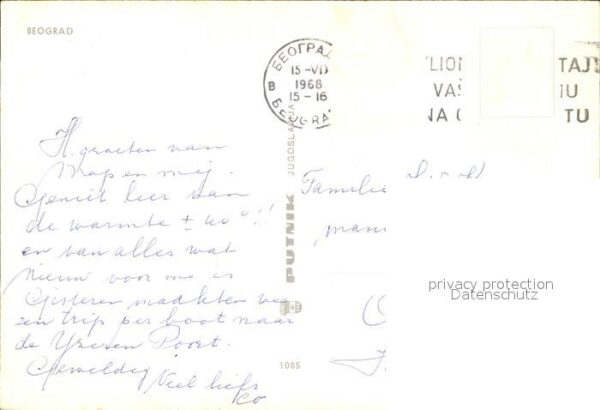 BEOGRAD
БЕОГРАД
15-VII
1968
15-16
B
BEOGRA
LION TAJ
VAŠ U
NA TU
H. groeten van
Map en mij.
Geniet hier van
de warmte ± 40°!!
en van alles wat
nieuw voor me is
Gisteren maakten we
een trip per boot naar
de Yzeren Poort.
Geweldig
Veel liefs
Ko
JUGOSLAVIJA
PUTNIK
1085
Familie
privacy protection
Datenschutz